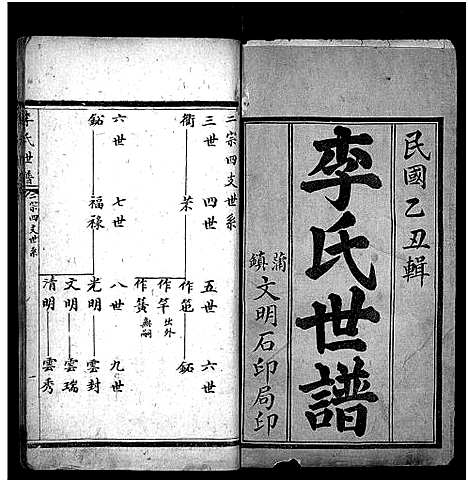 民國乙丑輯
李氏世譜
蒲鎮文明石印局印
二宗四支世系
三世 四世 五世 六世
衢 茱 作範 鉐
作竿 出外
作簧 無嗣
六世 七世 八世 九世
鉐 福祿 光明 雲封
文明 雲瑞
清明 雲秀
李氏世譜 二宗四支世系 一